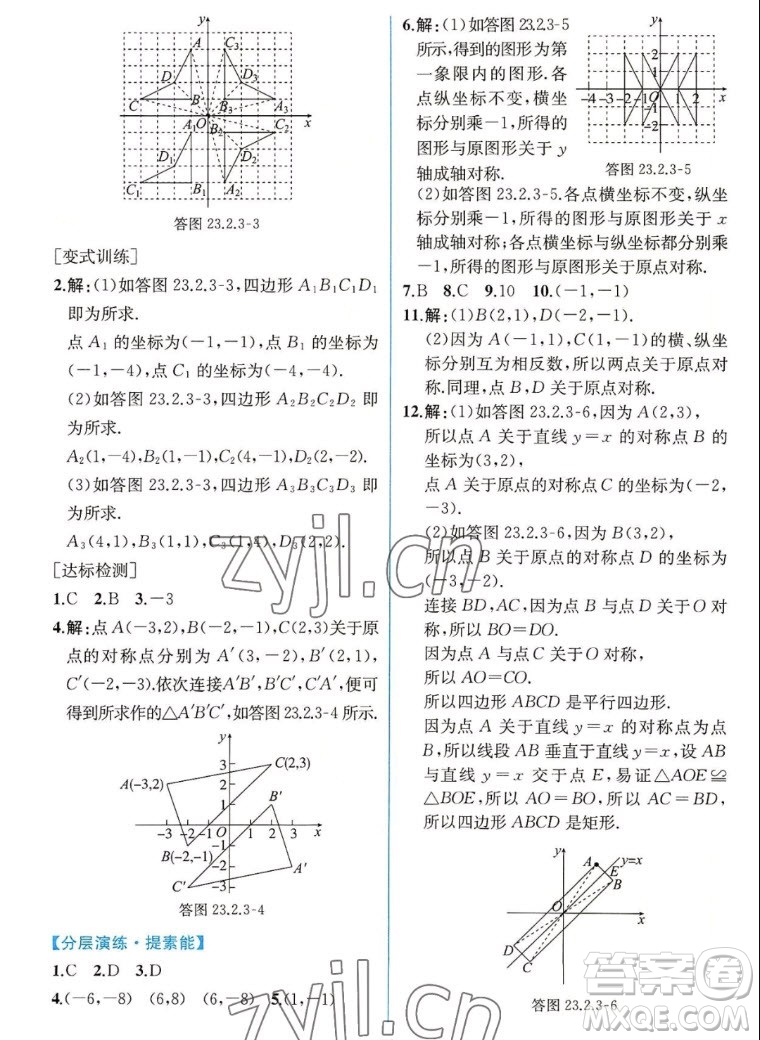 y
A
C₃
D
D₃
C
B
B₃
A₃
O
x
A₁
B₂
C₂
D₁
D₂
C₁
B₁
A₂
答图 23.2.3-3
[变式训练]
2.解:(1)如答图 23.2.3-3,四边形 A₁B₁C₁D₁
即为所求.
点 A₁ 的坐标为(-1,-1),点 B₁ 的坐标为
(-1,-4),点 C₁ 的坐标为(-4,-4).
(2)如答图 23.2.3-3,四边形 A₂B₂C₂D₂ 即
为所求.
A₂(1,-4),B₂(1,-1),C₂(4,-1),D₂(2,-2).
(3)如答图 23.2.3-3,四边形 A₃B₃C₃D₃ 即
为所求.
A₃(4,1),B₃(1,1),C₃(1,4),D₃(2,2).
[达标检测]
1.C 2.B 3.-3
4.解:点A(-3,2),B(-2,-1),C(2,3)关于原
点的对称点分别为 A′(3,-2),B′(2,1),
C′(-2,-3).依次连接A′B′,B′C′,C′A′,便可
得到所求作的△A′B′C′,如答图 23.2.3-4 所示.
y
3
C(2,3)
A(-3,2)
2
1
B′
-3 -2 -1 O 1 2 3 x
B(-2,-1)
-1
-2
A′
C′
-3
答图 23.2.3-4
【分层演练·提素能】
1.C 2.D 3.D
4.(-6,-8) (6,8) (6,-8) 5.(1,-1)
6.解:(1)如答图 23.2.3-5
所示,得到的图形为第
一象限内的图形.各
点纵坐标不变,横坐
标分别乘-1,所得的
图形与原图形关于 y
轴成轴对称.
y
2
1
-4 -3 -2 -1 O 1 2 x
-1
-2
答图 23.2.3-5
(2)如答图 23.2.3-5.各点横坐标不变,纵坐
标分别乘-1,所得的图形与原图形关于 x
轴成轴对称;各点横坐标与纵坐标都分别乘
-1,所得的图形与原图形关于原点对称.
7.B 8.C 9.10 10.(-1,-1)
11.解:(1)B(2,1),D(-2,-1).
(2)因为 A(-1,1),C(1,-1)的横、纵坐
标分别互为相反数,所以两点关于原点对
称.同理,B,D 关于原点对称.
12.解:(1)如答图 23.2.3-6,因为 A(2,3),
所以点 A 关于直线 y=x 的对称点 B 的
坐标为(3,2),
点 A 关于原点的对称点C的坐标为(-2,
-3).
(2)如答图 23.2.3-6,因为 B(3,2),
所以点 B 关于原点的对称点 D 的坐标为
(-3,-2).
连接 BD,AC,因为点 B 与点 D 关于 O 对
称,所以 BO=DO.
因为点 A 与点 C 关于 O 对称,
所以 AO=CO.
所以四边形 ABCD 是平行四边形.
因为点 A 关于直线 y=x 的对称点为点
B,所以线段 AB 垂直于直线 y=x,设 AB
与直线 y=x 交于点 E,易证△AOE≌
△BOE,所以 AO=BO,所以 AC=BD,
所以四边形 ABCD 是矩形.
y
A
y=x
E
B
O
x
D
C
答图 23.2.3-6
zyjl.cn
zyjl.cn
答案圈
MXQE.COM